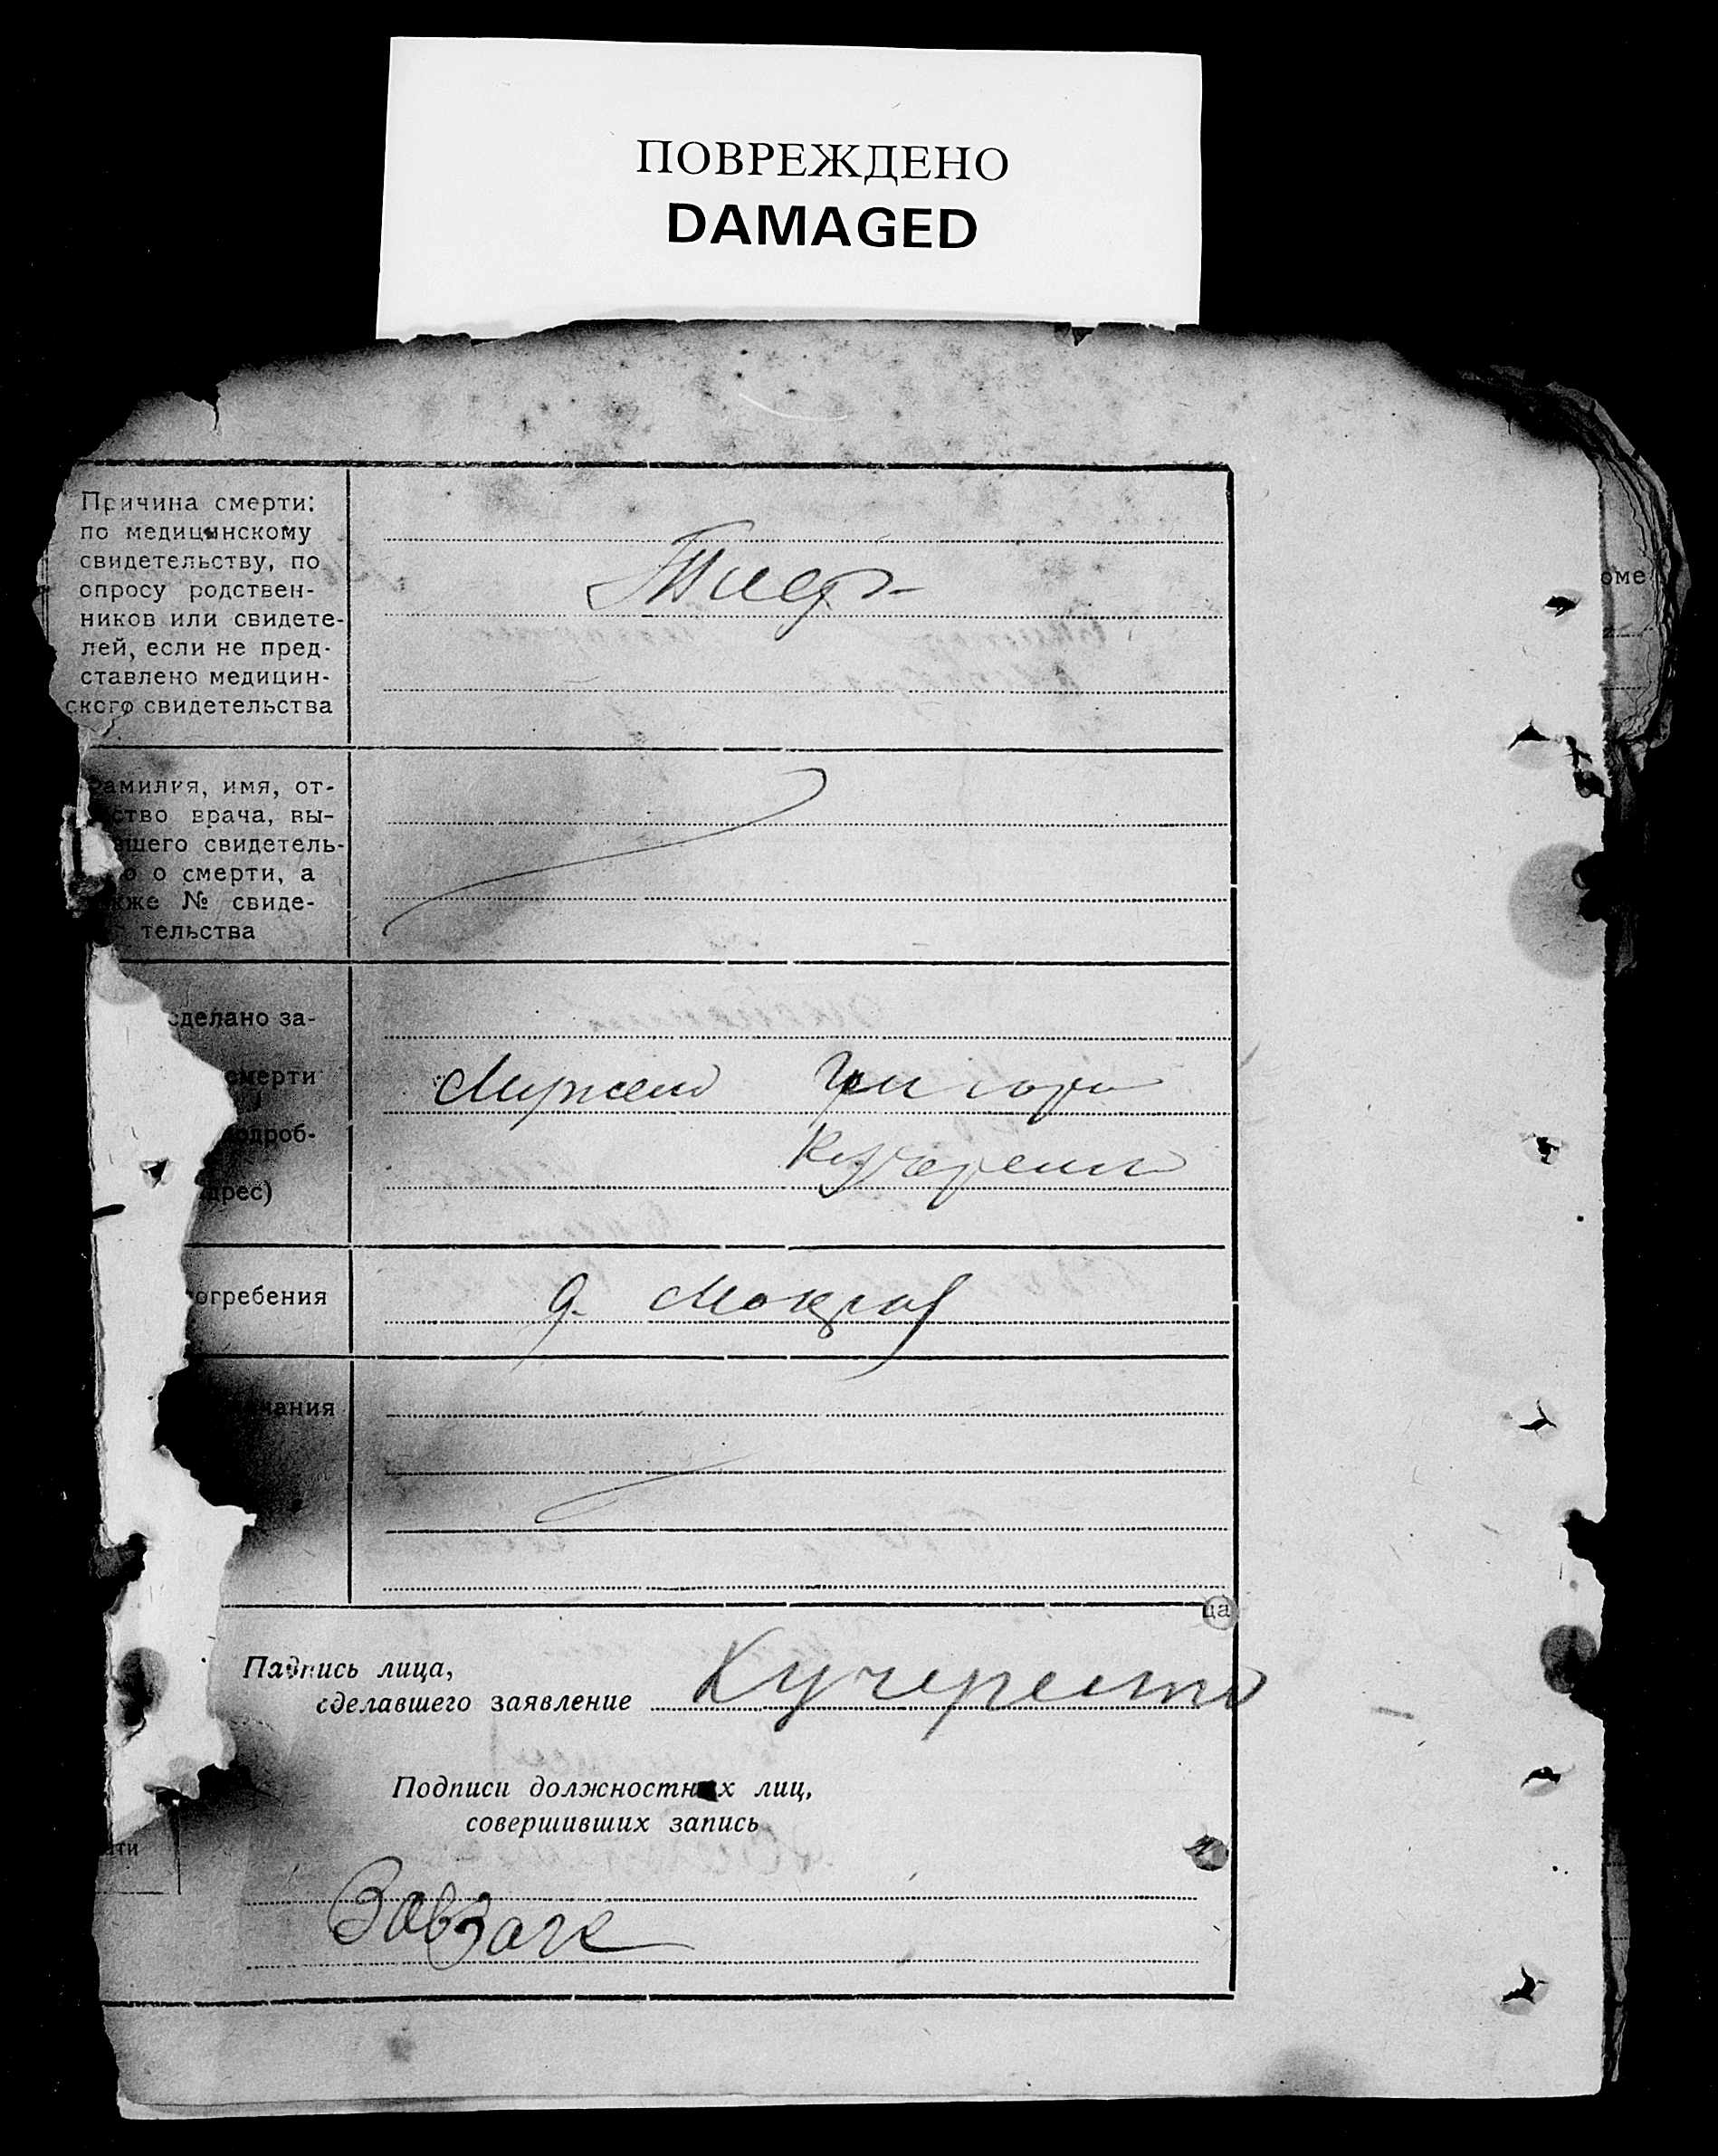 ПОВРЕЖДЕНО
DAMAGED
Причина смерти:
по медицинскому
свидетельству, по
опросу родствен-
ников или свидете-
лей, если не пред-
ставлено медицин-
ского свидетельства
оме
амилия, имя, от-
ство врача, вы-
вшего свидетель-
о о смерти, а
кже № свиде-
тельства
сделано за-
смерти
подроб-
Кучеренко
дрес)
огребения
д.
чания
ца
Подпись лица,
сделавшего заявление Кучеренко
Подписи должностных лиц,
совершивших запись
ти